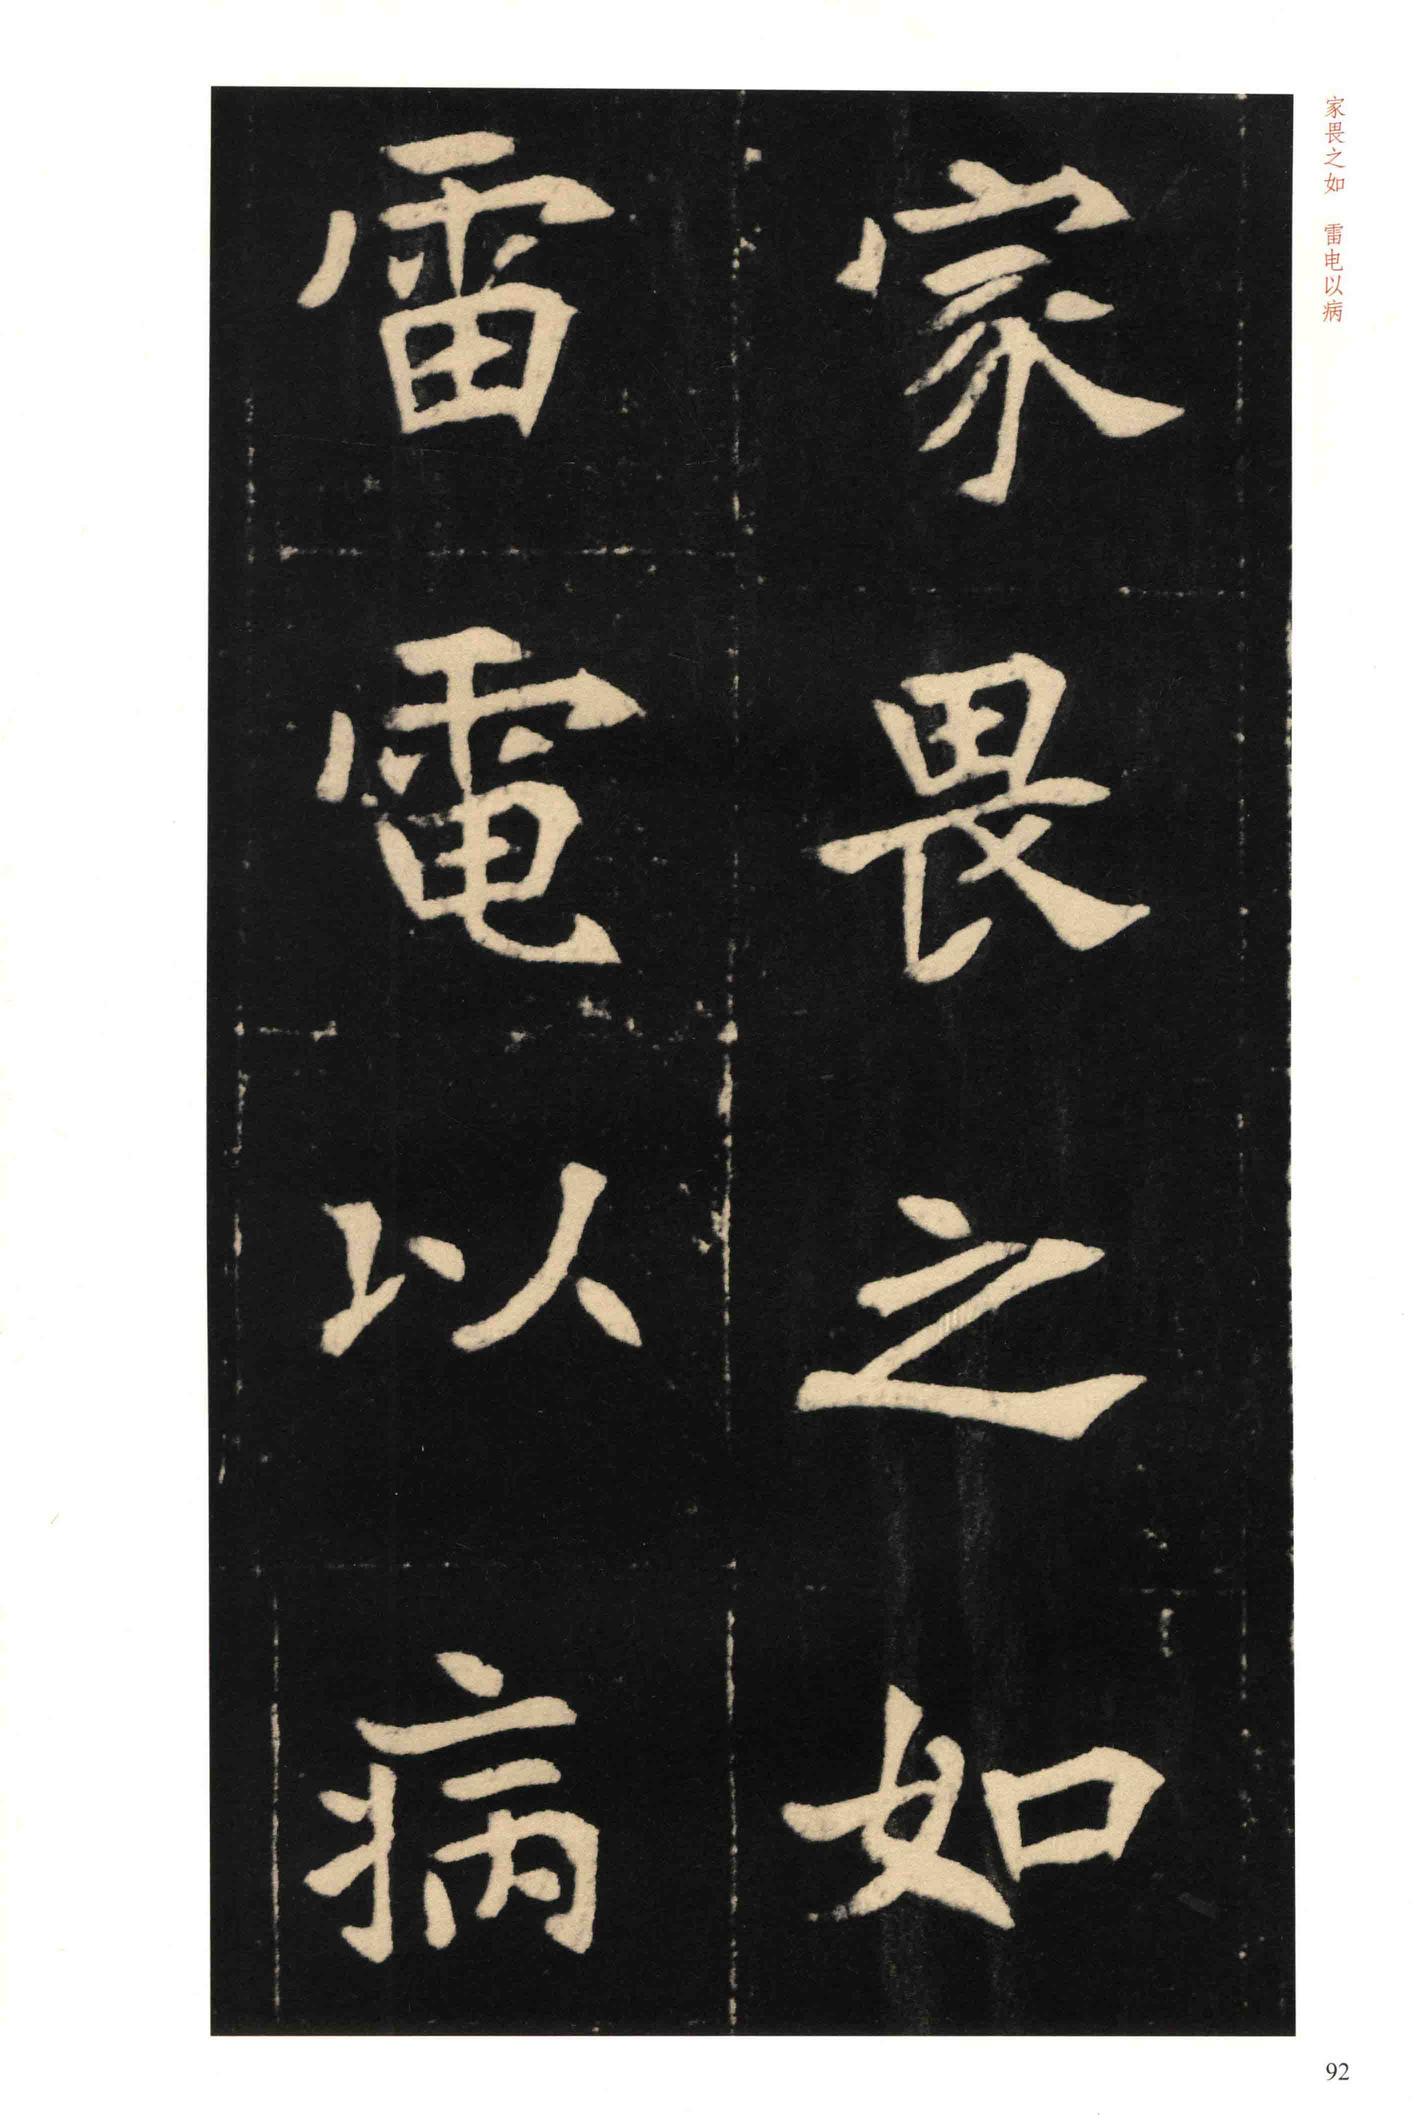 家畏之如
雷電以病
家畏之如 雷电以病
92